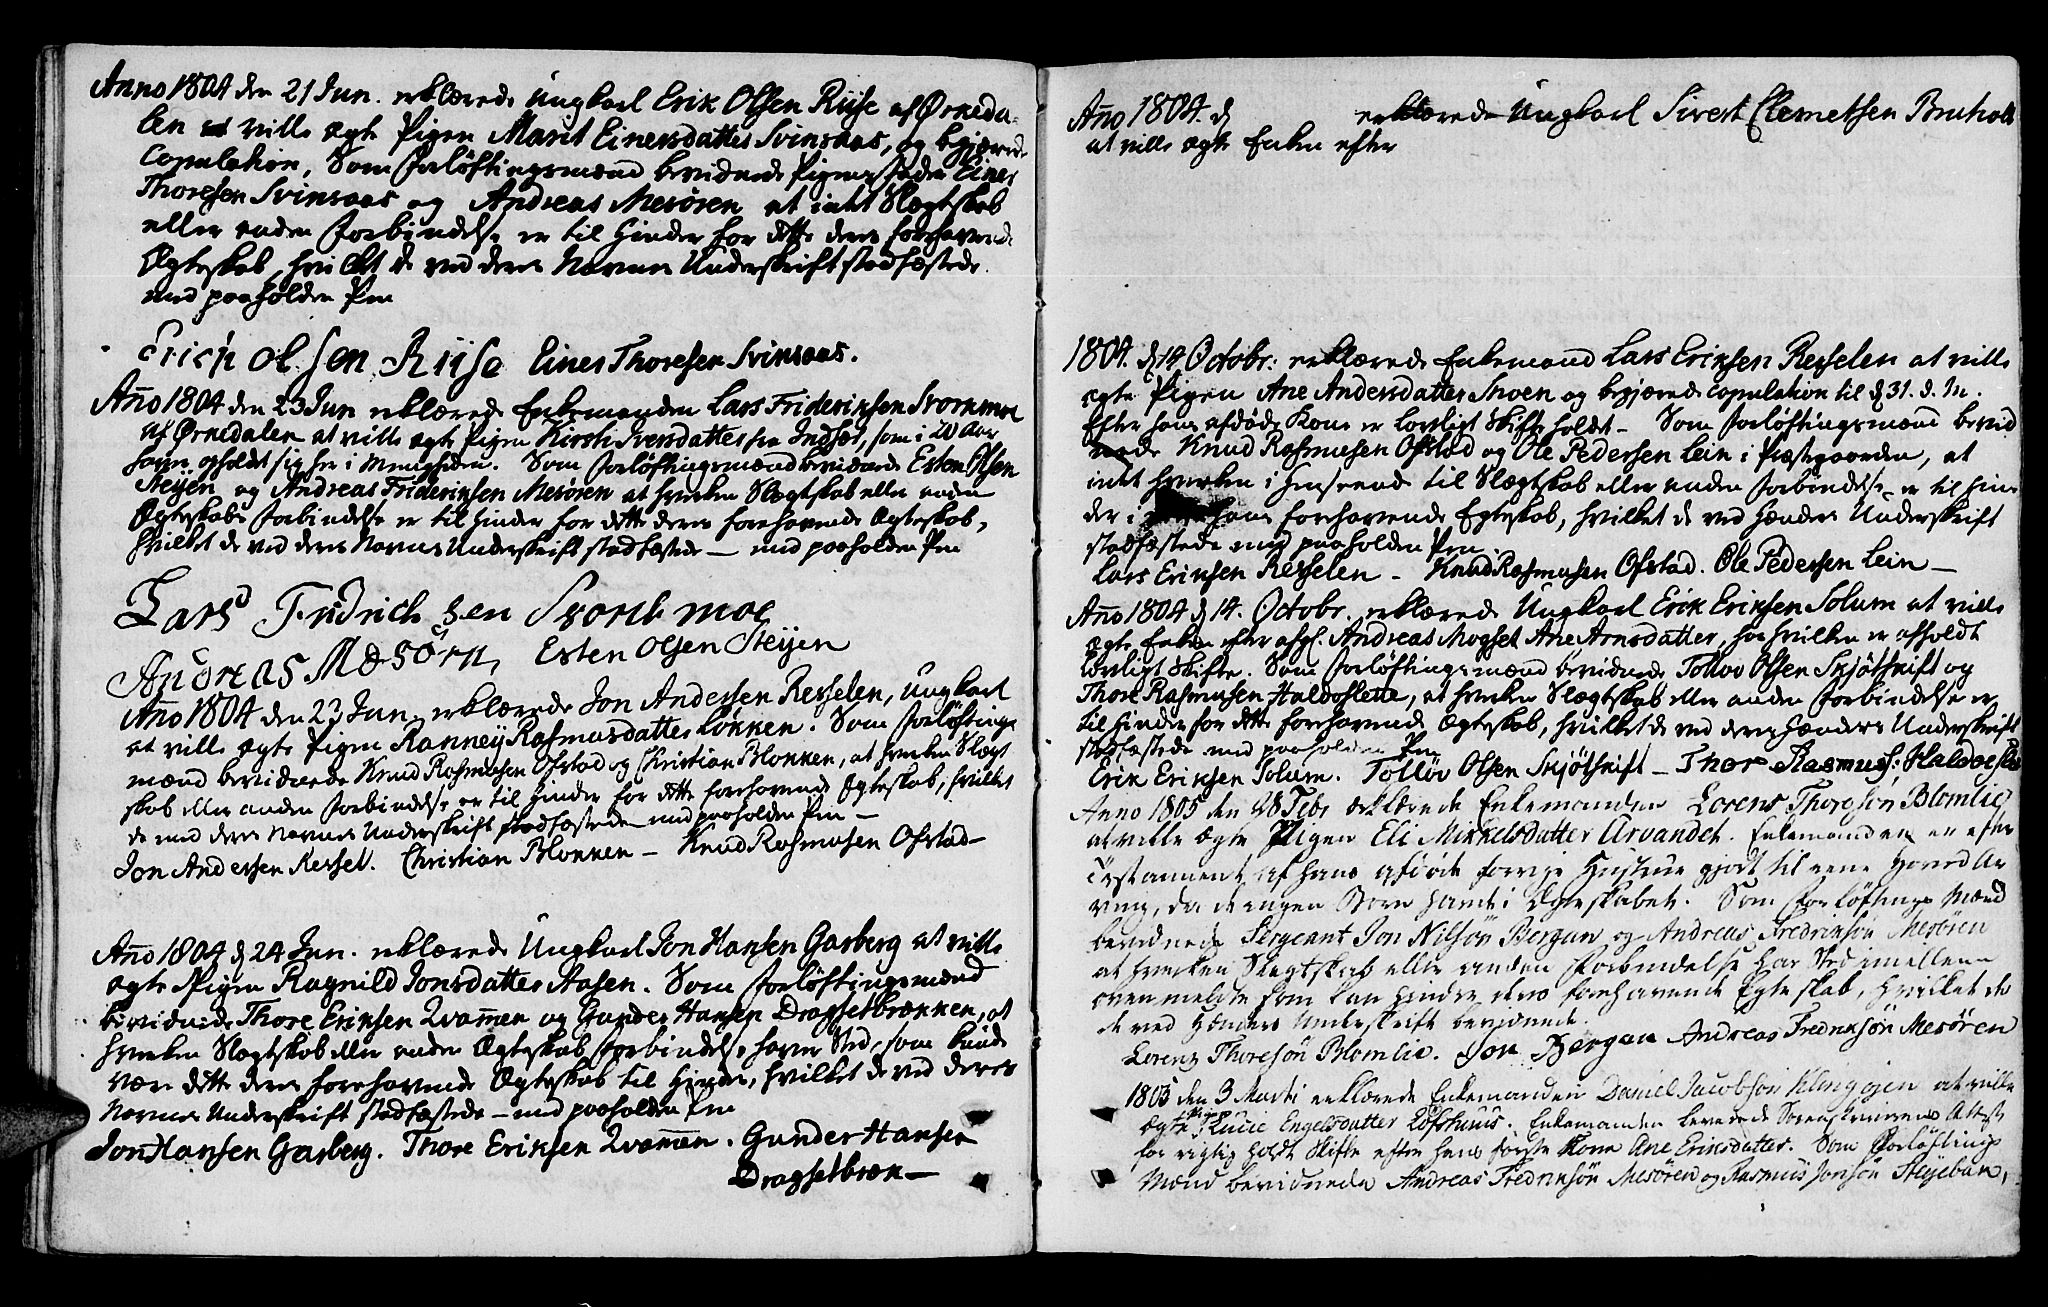 Anno 1804 den 21 Jun. erklærede Ungkarl Erik Olsen Riise af Ørneda-
len at ville ægte Pigen Marit Einersdatter Svinsaas, og begjærede
Copulation, Som Forløftingsmænd bevidnede Pigens Fader Einer
Thoresen Svinsaas og Andreas Mesøren at intet Slægtskab
eller anden Forbindelse er til Hinder for dette deres forehavende
Ægteskab, hvilket de ved deres Navnes Underskrift stadfæstede
med paaholden Pen
Erich Olsen Riise Einer Thoresen Svinsaas.
Año 1804 den 23 Jun erklærede Enkemanden Lars Friderichsen Svorkmoe
af Ørnedalen at ville ægte Pigen Kirsti Iversdatter fra Indset, som i 20 Aar
haver opholdt sig her i Menigheden. Som Forløftingsmænd bevidnede Esten Olsen
Steijen og Andreas Friderichsen Mesøren at hverken Slægtskab eller anden
Ægteskabs Forbindelse er til Hinder for dette deres forehavende Ægteskab,
hvilket de ved deres Navnes Underskrift stadfæstede — med paaholden Pen
Lars Fridrich sen Svorkmoe
Andreas Mesörn, Esten Olsen Steijen
Año 1804 den 23 Jun erklærede Jon Andersen Resselen, Ungkarl
at ville ægte Pigen Ranneij Rasmusdatter Løkken. Som Forløftings
mænd bevidnede Knud Rasmusen Ofstad og Christian Blokken, at hverken Slægt
skab eller anden Forbindelse er til Hinder for dette forehavende Ægteskab, hvilket
de med deres Navnes Underskrift stadfæstede med paaholden Pen —
Jon Andersen Ressel. Christian Blokken — Knud Rasmusen Ofstad —
Año 1804 d 24 Jun. erklærede Ungkarl Jon Hansen Garberg at ville
ægte Pigen Ragnild Jonsdatter Aasen. Som Forløftingsmænd
bevidnede Thore Eriksen Qvam̄en og Gunder Hansen Dragsetbrækken, at
hverken Slægtskab eller anden Ægteskabs Forbindelse haver Sted, som kunde
være dette deres forehavende Ægteskab til Hinder, hvilket de ved deres
Navnes Underskrift stadfæstede — med paaholden Pen
Jon Hansen Garberg. Thore Eriksen Qvam̄en. Gunder Hansen
Dragsetbræk —
Año 1804. d erklærede Ungkarl Sivert Clemetsen Bruholt
at ville ægte Enken efter
1804. d 14 Octobr: erklærede Enkemand Lars Eriksen Resselen at ville
ægte Pigen Ane Andersdatter Moen og begjærede copulation til d 31. d. M.
Efter hans afdøde Kone er lovligt Skifte holdt — Som Forløftingsmænd bevid
nede Knud Rasmusen Ofstad og Ole Pedersen Lein i Præstgaarden, at
intet hverken i Henseende til Slægtskab eller anden Forbindelse er til Hin
der i hans forehavende Egteskab, hvilket de ved Hænders Underskrift
stadfæstede med paaholden Pen
Lars Eriksen Resselen — Knud Rasmusen Ofstad. Ole Pedersen Lein —
Año 1804 d 14. Octobr. erklærede Ungkarl Erik Eriksen Solum at ville
ægte Enken efter afgl. Andreas Mogset Ane Arnsdatter, for hvilken er afholdt
lovligt Skifte. Som Forløftingsmænd bevidnede Tollov Olsen Skjøtskift og
Thore Rasmusen Haldoslette, at hverken Slægtskab eller anden Forbindelse er
til Hinder for dette forehavende Ægteskab, hvilket de ved deres Hænders Underskrift
stadfæstede med paaholden Pen
Erik Eriksen Solum. Tolløv Olsen Skjøtskift — Thor Rasmus: Haldoesle
Anno 1805 den 28 Febr erklærede Enkemanden Lorens Thoresøn Blomlie
at ville ægte Pigen Eli Mikkelsdatter Arvandet. Enkemanden er efter
Testament af hans afdøde forrige Hustrue gjort til eene Hoved Ar
ving, da de ingen Børn havde i Ægteskabet. Som Forløftings Mænd
bevidnede Sergeant Jon Nilsøn Bergan og Andreas Fredriksøn Mesøren
at hverken Slegtskab eller anden Forbindelse har Sted mellem
ovenmeldte som kan hindre deres forehavende Egteskab, hvilket de
de ved Hænders Underskrift bevidnede.
Lorens Thoresøn Blomlie. Jon Bergan Andreas Fredriksøn Mesøren
1805 den 3 Marti erklærede Enkemanden Daniel Jacobsøn Klingøien at ville
ægte Pigen Lucie Engelsdatter Lofshuus. Enkemanden leverede Sorenskriverens Attest
for rigtig holdt Skifte efter hans første Kone Ane Eriksdatter. Som Forløftings
Mænd bevidnede Andreas Fredriksøn Mesøren og Rasmus Jonsøn Steijebak,